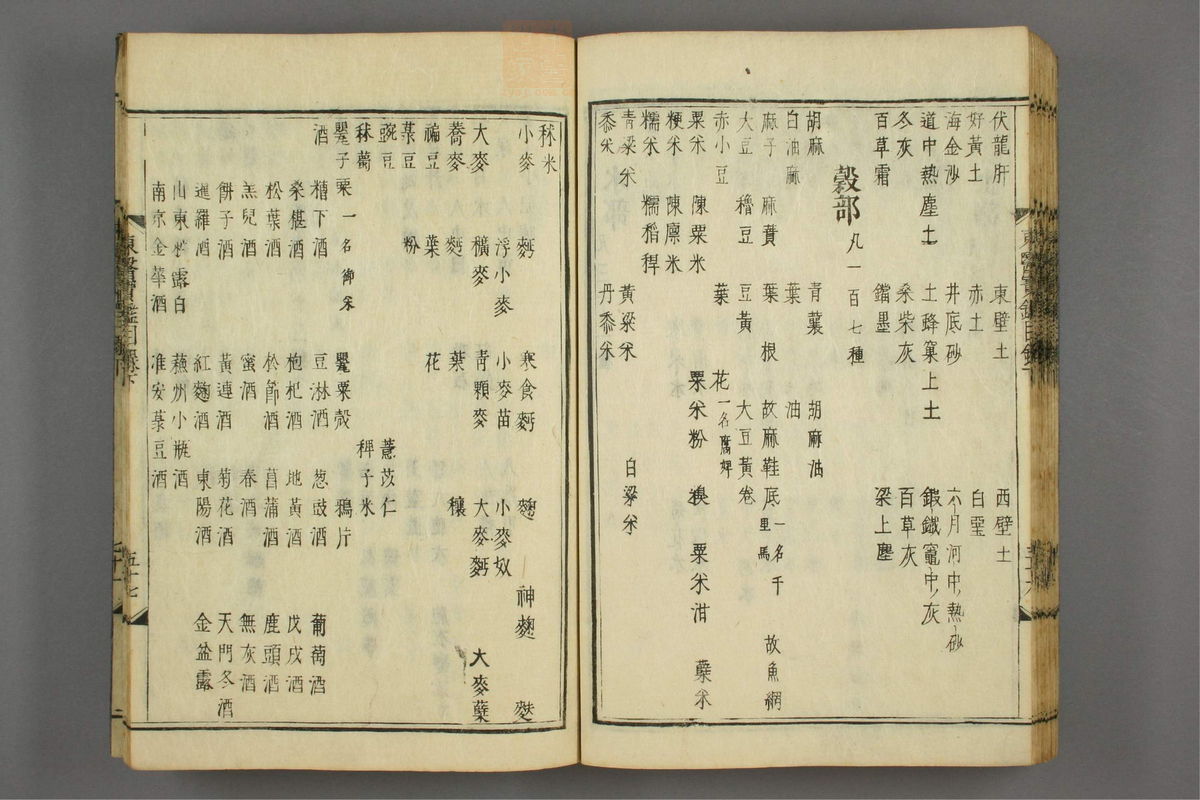 伏龍肝 東壁土 西壁土
好黃土 赤土 白堊
海金沙 井底砂 六月河中熱砂
道中熱塵土 土蜂窠上土 鍛鐵竈中灰
冬灰 桑柴灰 百草灰
百草霜 鐺墨 梁上塵
穀部 凡一百七種
胡麻 青蘘 胡麻油
白油麻 葉 油
麻子 麻蕡 葉 根 故麻鞋底 一名千里馬 故魚網
大豆 穭豆 豆黃 大豆黃卷
赤小豆 葉 花 一名腐婢
粟米 陳粟米 粟米粉 粟米泔 糵米
粳米 陳廩米
糯米 糯稻稈
青粱米 黃粱米 白粱米
黍米 丹黍米
東醫寶鑑目錄下
秫米
小麥 麪 寒食麪 麯 神麯 麩
浮小麥 小麥苗 小麥奴
大麥 穬麥 靑顆麥 大麥麪 大麥糵
蕎麥 麪 葉 穰
藊豆 葉 花
菉豆 粉
豌豆 薏苡仁
秫薥 稗子米
甖子粟 一名御米 甖粟殼 鴉片
酒 糟下酒 豆淋酒 葱豉酒 葡萄酒
桑椹酒 枸杞酒 地黃酒 戊戌酒
松葉酒 松節酒 菖蒲酒 鹿頭酒
羔兒酒 蜜酒 春酒 無灰酒
餠子酒 黃連酒 菊花酒 天門冬酒
暹羅酒 紅麯酒 東陽酒 金盆露
山東秋露白 蘓州小瓶酒
南京金華酒 淮安菉豆酒
東醫寶鑑目錄下 五十七